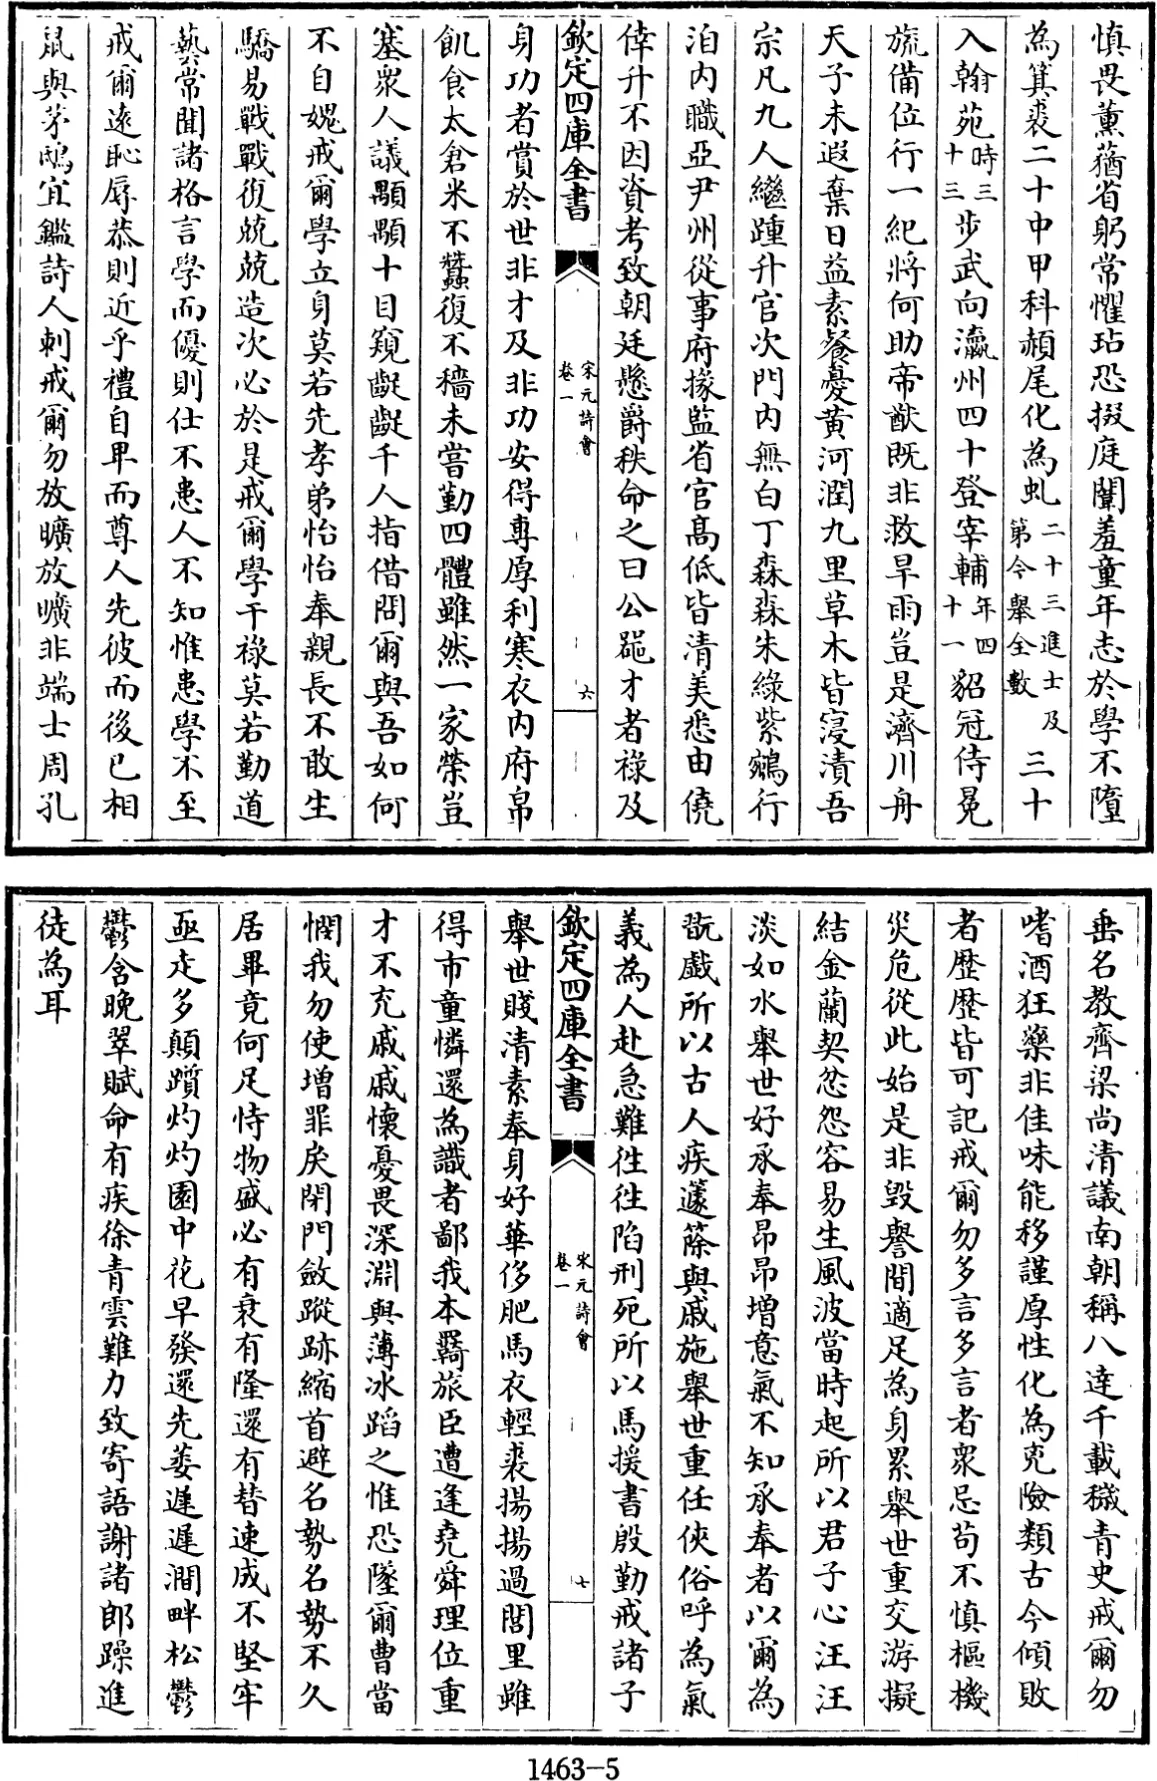 慎畏薰蕕省躬常懼玷恐掇庭闈羞童年志於學不隳
為箕裘二十中甲科赬尾化為虬二十三進士及第今舉全數三十
入翰苑時三十三步武向瀛州四十登宰輔年四十一貂冠侍冕
旒備位行一紀將何助帝猷既非救旱雨豈是濟川舟
天子未遐棄日益素餐憂黄河潤九里草木皆寖漬吾
宗凡九人繼踵升官次門内無白丁森森朱綠紫鵷行
洎内職亞尹州從事府掾監省官髙低皆清美悉由僥
倖升不因資考致朝廷懸爵秩命之曰公器才者祿及
欽定四庫全書
宋元詩會
卷一
六
身功者賞於世非才及非功安得專厚利寒衣内府帛
飢食太倉米不蠶復不穡未嘗勤四體雖然一家榮豈
塞衆人議顒顒十目窺齪齪千人指借問爾與吾如何
不自媿戒爾學立身莫若先孝弟怡怡奉親長不敢生
驕易戰戰復兢兢造次必於是戒爾學干祿莫若勤道
藝常聞諸格言學而優則仕不患人不知惟患學不至
戒爾遠恥辱恭則近乎禮自卑而尊人先彼而後己相
鼠與茅鴟宜鑑詩人刺戒爾勿放曠放曠非端士周孔
垂名教齊梁尚清議南朝稱八達千載穢青史戒爾勿
嗜酒狂藥非佳味能移謹厚性化為兇險類古今傾敗
者歷歷皆可記戒爾勿多言多言者衆忌茍不慎樞機
災危從此始是非毀譽間適足為身累舉世重交游擬
結金蘭契忿怨容易生風波當時起所以君子心汪汪
淡如水舉世好承奉昂昂增意氣不知承奉者以爾為
翫戲所以古人疾蘧篨與戚施舉世重任俠俗呼為氣
義為人赴急難徃徃陷刑死所以馬援書殷勤戒諸子
欽定四庫全書
宋元詩會
卷一
七
舉世賤清素奉身好華侈肥馬衣輕裘揚揚過閭里雖
得市童憐還為識者鄙我本羇旅臣遭逢堯舜理位重
才不充戚戚懷憂畏深淵與薄冰蹈之惟恐墜爾曹當
憫我勿使增罪戾閉門斂蹤跡縮首避名勢名勢不久
居畢竟何足恃物盛必有衰有隆還有替速成不堅牢
亟走多顛躓灼灼園中花早發還先萎遲遲澗畔松鬱
鬱含晚翠賦命有疾徐青雲難力致寄語謝諸郎躁進
徒為耳
1463-5